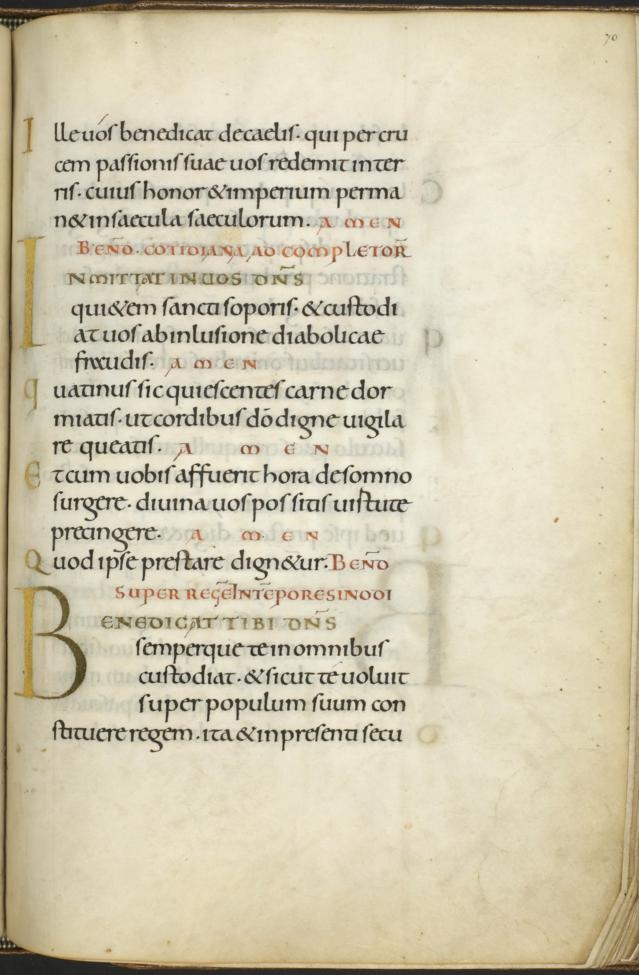 70
Ille uos benedicat de caelis. qui per cru
cem passionis suae uos redemit in ter
ris. cuius honor & imperium perma
n& in saecula saeculorum. AMEN
BEND. COTIDIANA AD COMPLETOR
INMITTAT IN UOS DNS
qui&em sancti soporis. & custodi
at uos ab inlusione diabolicae
fraudis. AMEN
quatinus sic quiescentes carne dor
miatis. ut cordibus do digne uigila
re queatis. AMEN
Et cum uobis affuerit hora de somno
surgere. diuina uos possitis uirtute
precingere. AMEN
Quod ipse prestare dign&ur. BEND
SUPER REGE IN TEPORE SINODI
BENEDICAT TIBI DNS
semperque te in omnibus
custodiat. & sicut te uoluit
super populum suum con
stituere regem. ita & in presenti secu